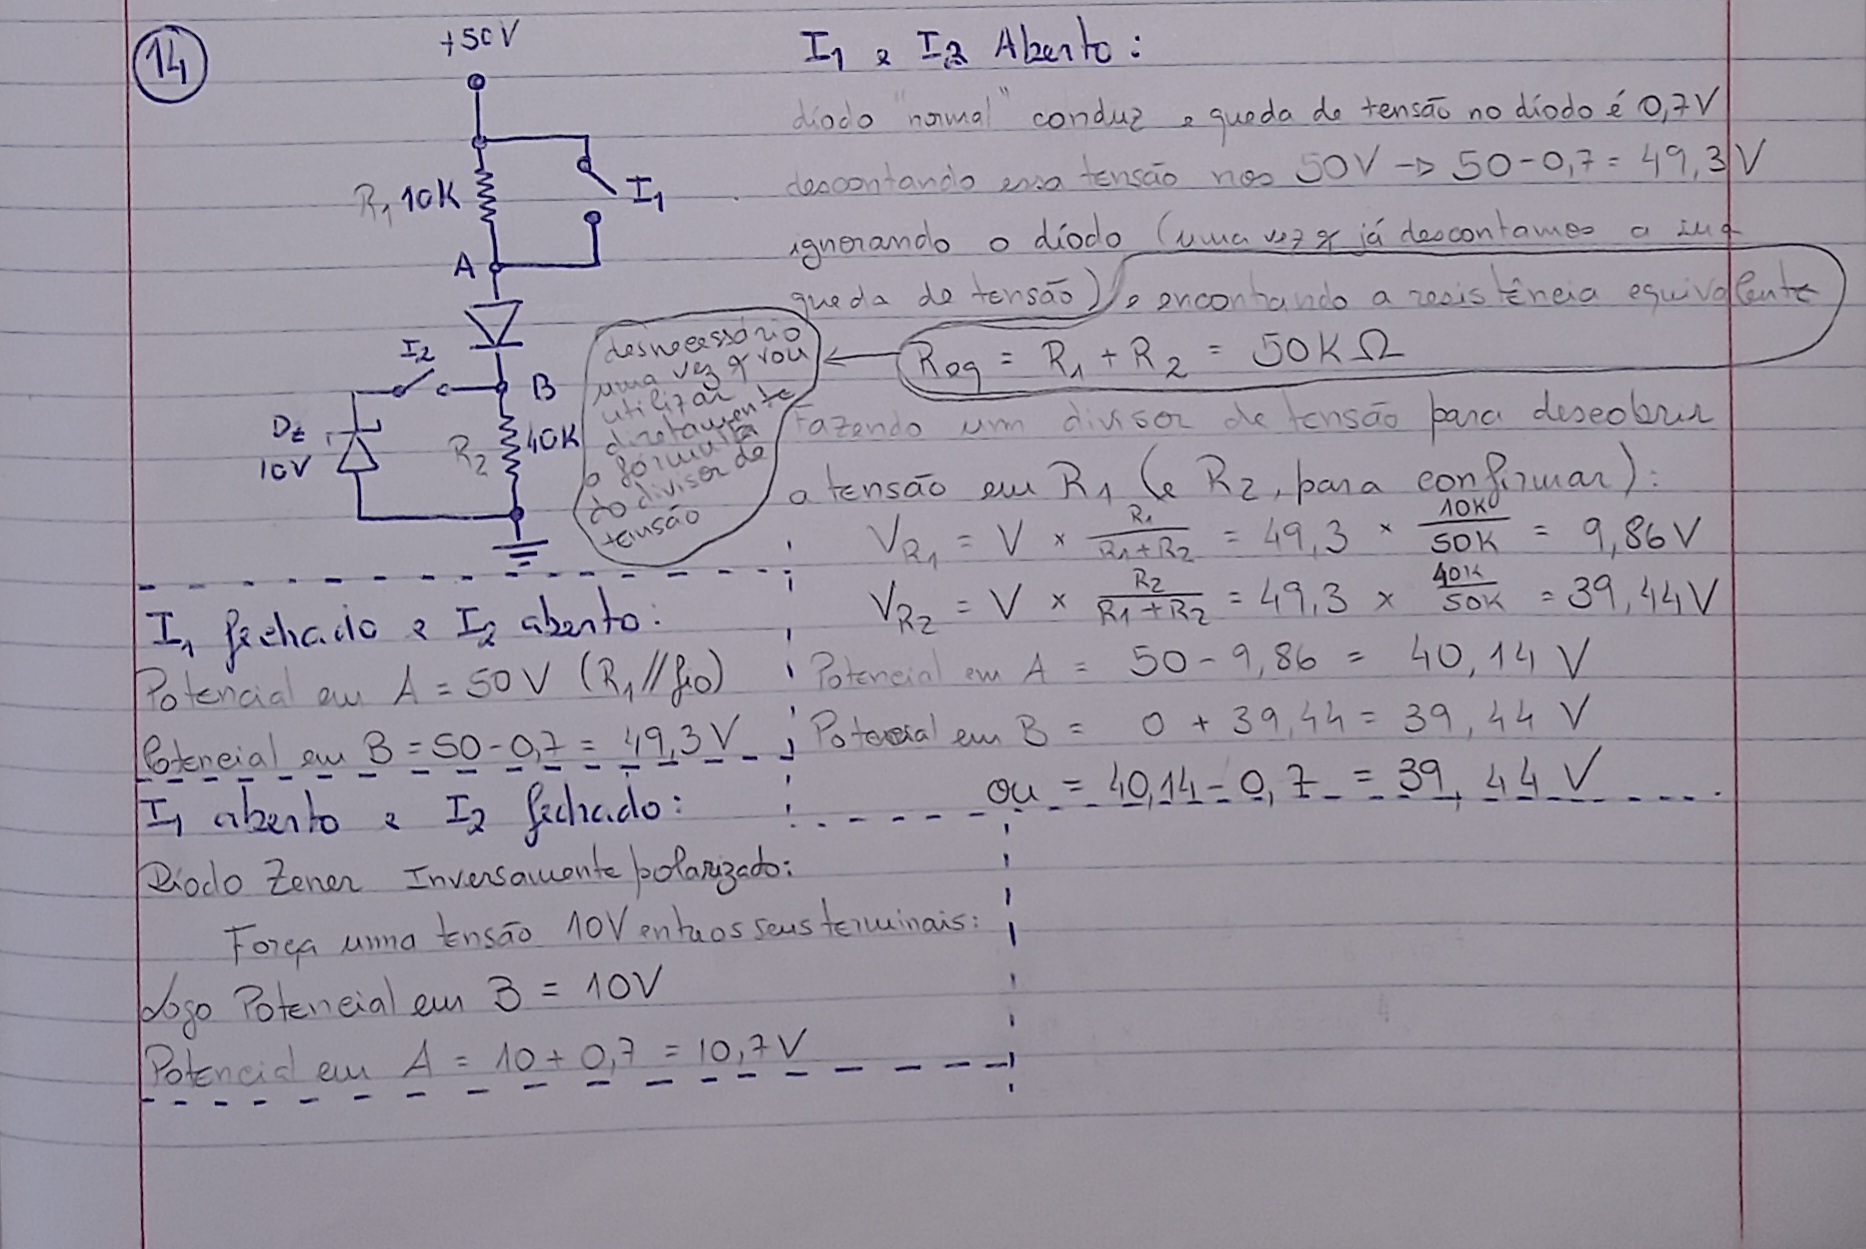 14
+50V
R1 10K
I1
A
I2
B
Dz
10V
R2
40K
I1 e I2 Aberto:
díodo "normal" conduz e queda de tensão no díodo é 0,7V
descontando essa tensão nos 50V → 50-0,7 = 49,3V
ignorando o díodo (uma vez q já descontamos a sua
queda de tensão) e encontrando a resistência equivalente
Req = R1 + R2 = 50KΩ
desnecessário
uma vez q vou
utilizar
diretamente
a fórmula
do divisor de
tensão
Fazendo um divisor de tensão para descobrir
a tensão em R1 (e R2, para confirmar):
VR1 = V × R1/(R1+R2) = 49,3 × 10K/50K = 9,86V
VR2 = V × R2/(R1+R2) = 49,3 × 40K/50K = 39,44V
Potencial em A = 50-9,86 = 40,14 V
Potencial em B = 0 + 39,44 = 39,44 V
ou = 40,14-0,7 = 39,44 V
I1 fechado e I2 aberto:
Potencial em A = 50V (R1//fio)
Potencial em B = 50-0,7 = 49,3V
I1 aberto e I2 fechado:
Díodo Zener Inversamente polarizado:
Força uma tensão 10V entre os seus terminais:
Logo Potencial em B = 10V
Potencial em A = 10 + 0,7 = 10,7V